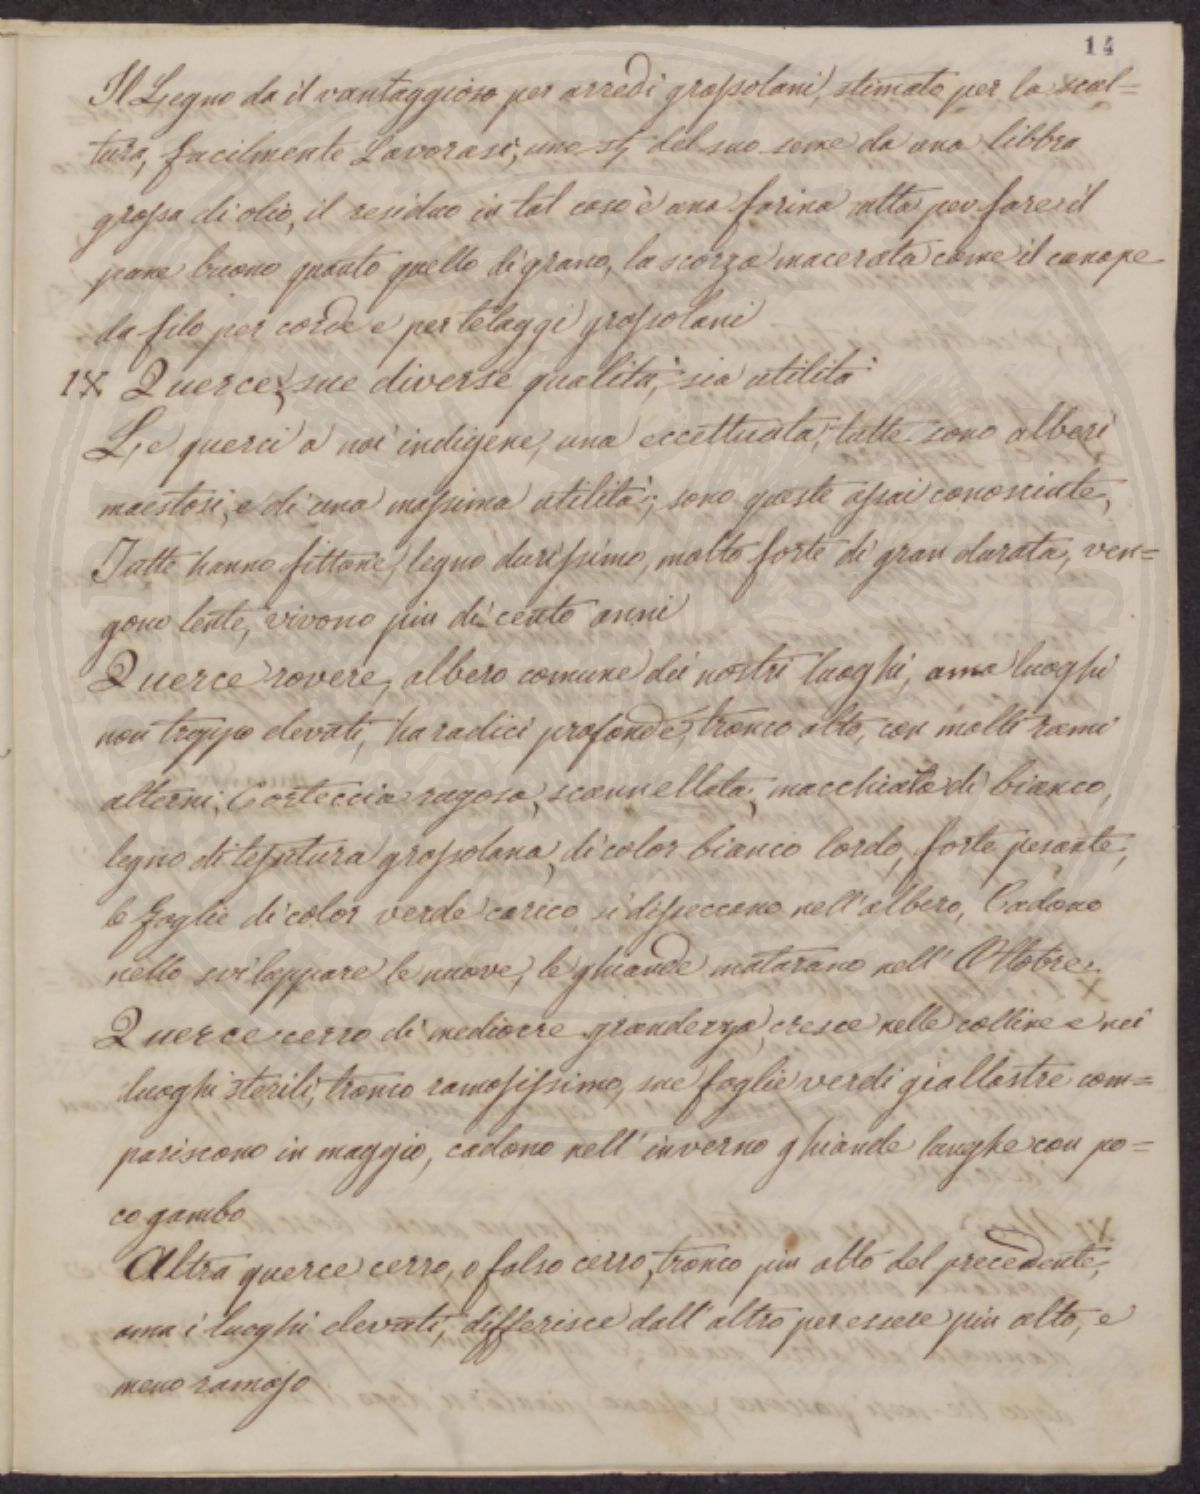 14
Il Legno da il vantaggioso per arredi grossolani, stimato per la scul=
tura, facilmente Lavorasi, uno st; del suo seme da una libbra
grossa di olio, il residuo in tal caso è una farina atta per fare il
pane buono quanto quello di grano, la scorza macerata come il canape
da filo per corde e per telaggi grossolani
IX Querce, sue diverse qualità, sia utilità
Le querci a noi indigene, una eccettuata, tutte sono alberi
maestosi, e di una massima utilità; sono queste assai conosciute,
Tutte hanno fittone, legno durissimo, molto forte di gran durata, ven=
gono lente, vivono piu di cento anni
Querce rovere, albero comune dei nostri luoghi, ama luoghi
non troppo elevati, ha radici profonde, tronco alto, con molti rami
alterni, Corteccia rugosa, scannellata, macchiata di bianco,
legno di tessitura grossolana, di color bianco lordo, forte pesante,
le foglie di color verde carico si disseccano nell'albero, Cadono
nello sviluppare le nuove, le ghiande maturano nell'Ottobre.
Querce cerro di mediocre grandezza, cresce nelle colline e nei
luoghi sterili, tronco ramosissimo, sue foglie verdi giallastre com=
pariscono in maggio, cadono nell'inverno ghiande lunghe con po=
co gambo
Altra querce cerro, o falso cerro, tronco piu alto del precedente,
ama i luoghi elevati, differisce dall'altro per essere piu alto, e
meno ramoso